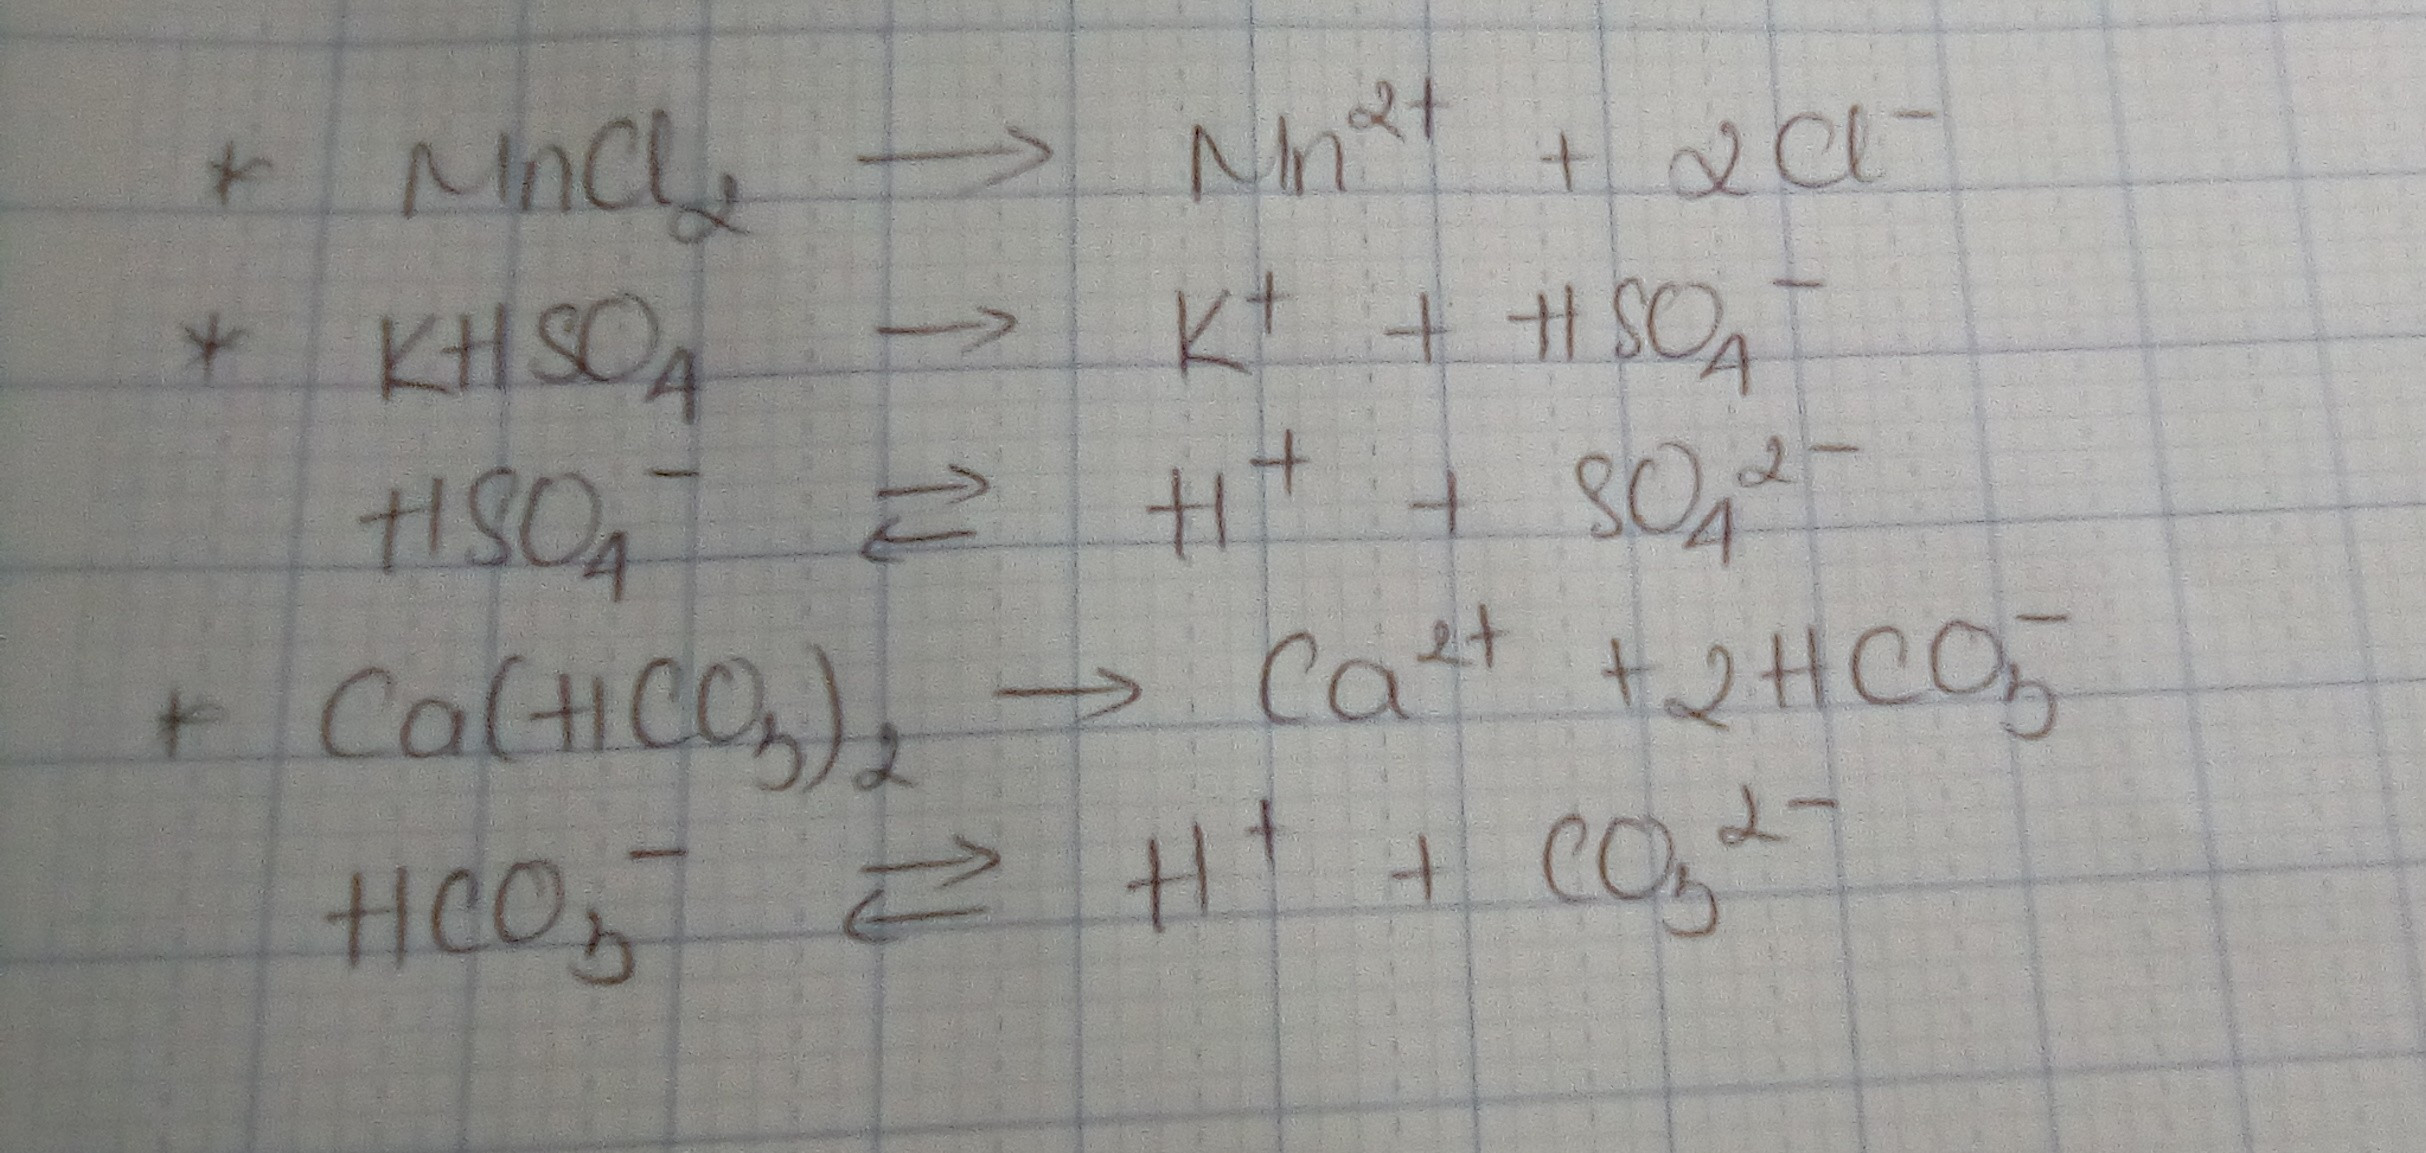 * MnCl₂ → Mn²⁺ + 2Cl⁻
* KHSO₄ → K⁺ + HSO₄⁻
HSO₄⁻ ⇄ H⁺ + SO₄²⁻
+ Ca(HCO₃)₂ → Ca²⁺ + 2HCO₃⁻
HCO₃⁻ ⇄ H⁺ + CO₃²⁻